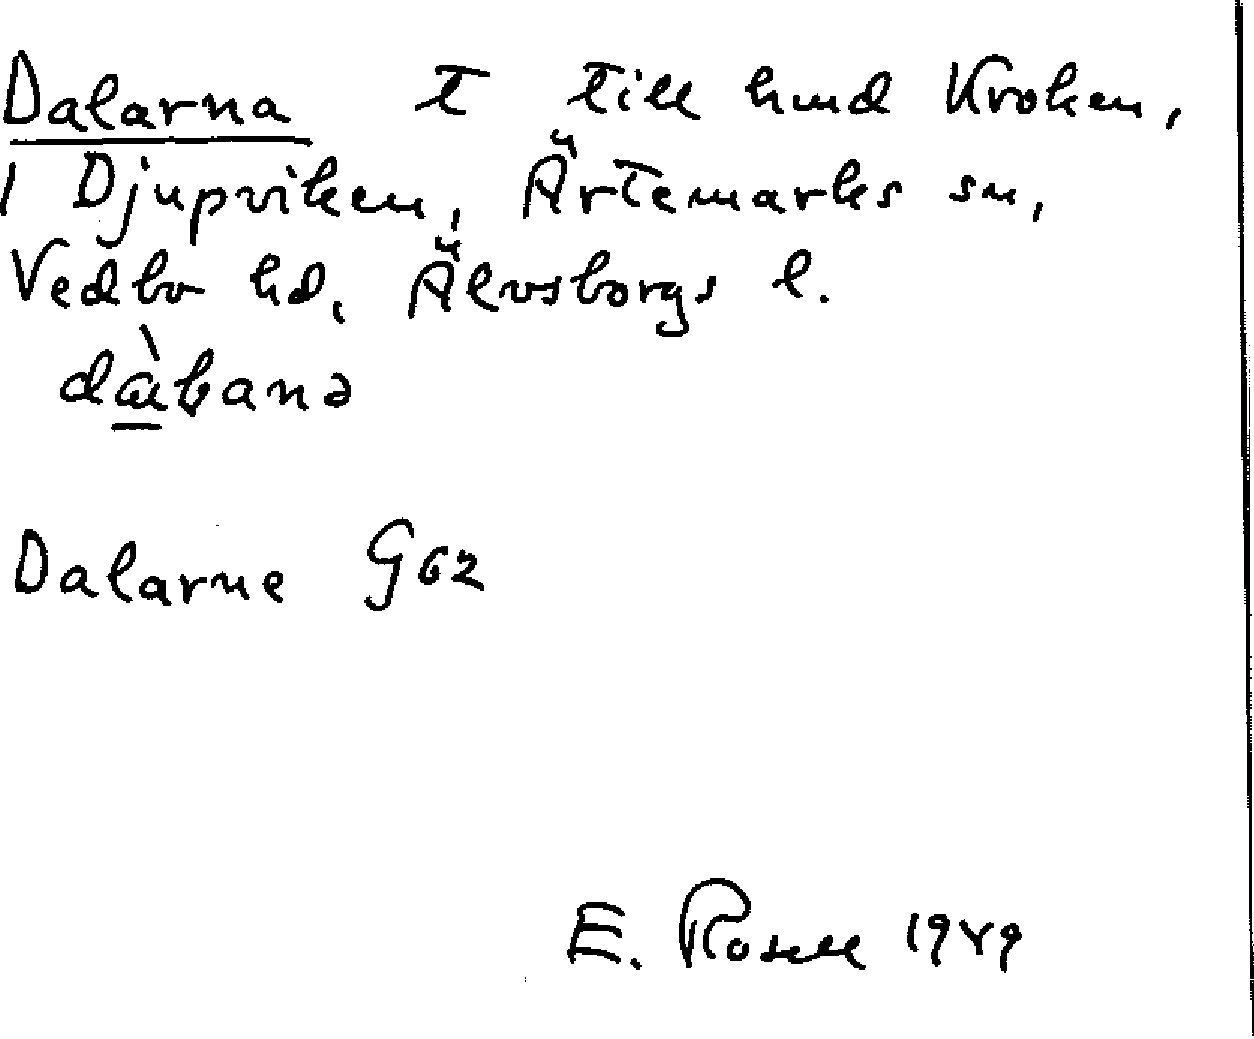 Dalarna t till hmd Kroken,
1 Djupviken, Ärtemarks sn,
Vedbo hd, Älvsborgs l.
Dalarne G62
E. Rosell 1949